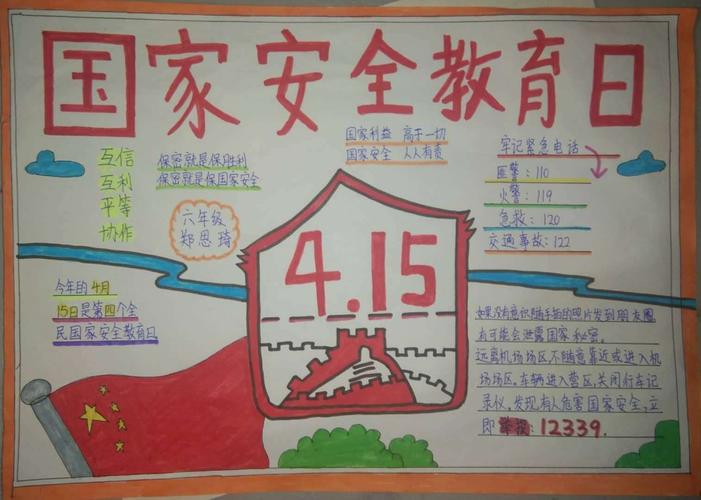 国家安全教育日
互信
互利
平等
协作
保密就是保胜利
保密就是保国家安全
国家利益 高于一切
国家安全 人人有责
牢记紧急电话
匪警:110
火警:119
急救:120
交通事故:122
六年级
郑思琦
4.15
今年的4月
15日是第四个全
民国家安全教育日
如果没有意识随手拍的照片发到朋友圈
有可能会泄露国家秘密。
远离机场场区,不随意靠近或进入机
场场区。车辆进入营区,关闭行车记
录仪。发现有人危害国家安全,立
即举报:12339.